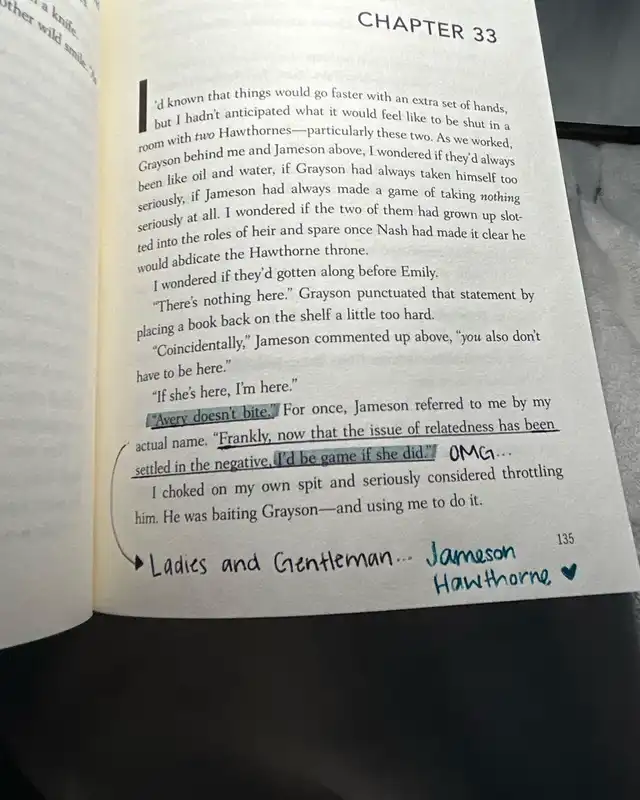 a knife.
other wild smile.
CHAPTER 33
I'd known that things would go faster with an extra set of hands,
but I hadn't anticipated what it would feel like to be shut in a
room with two Hawthornes—particularly these two. As we worked,
Grayson behind me and Jameson above, I wondered if they'd always
been like oil and water, if Grayson had always taken himself too
seriously, if Jameson had always made a game of taking nothing
seriously at all. I wondered if the two of them had grown up slot-
ted into the roles of heir and spare once Nash had made it clear he
would abdicate the Hawthorne throne.
I wondered if they'd gotten along before Emily.
"There's nothing here." Grayson punctuated that statement by
placing a book back on the shelf a little too hard.
"Coincidentally," Jameson commented up above, "you also don't
have to be here."
"If she's here, I'm here."
"Avery doesn't bite." For once, Jameson referred to me by my
actual name. "Frankly, now that the issue of relatedness has been
settled in the negative, I'd be game if she did." OMG...
I choked on my own spit and seriously considered throttling
him. He was baiting Grayson—and using me to do it.
135
Ladies and Gentleman... Jameson
Hawthorne